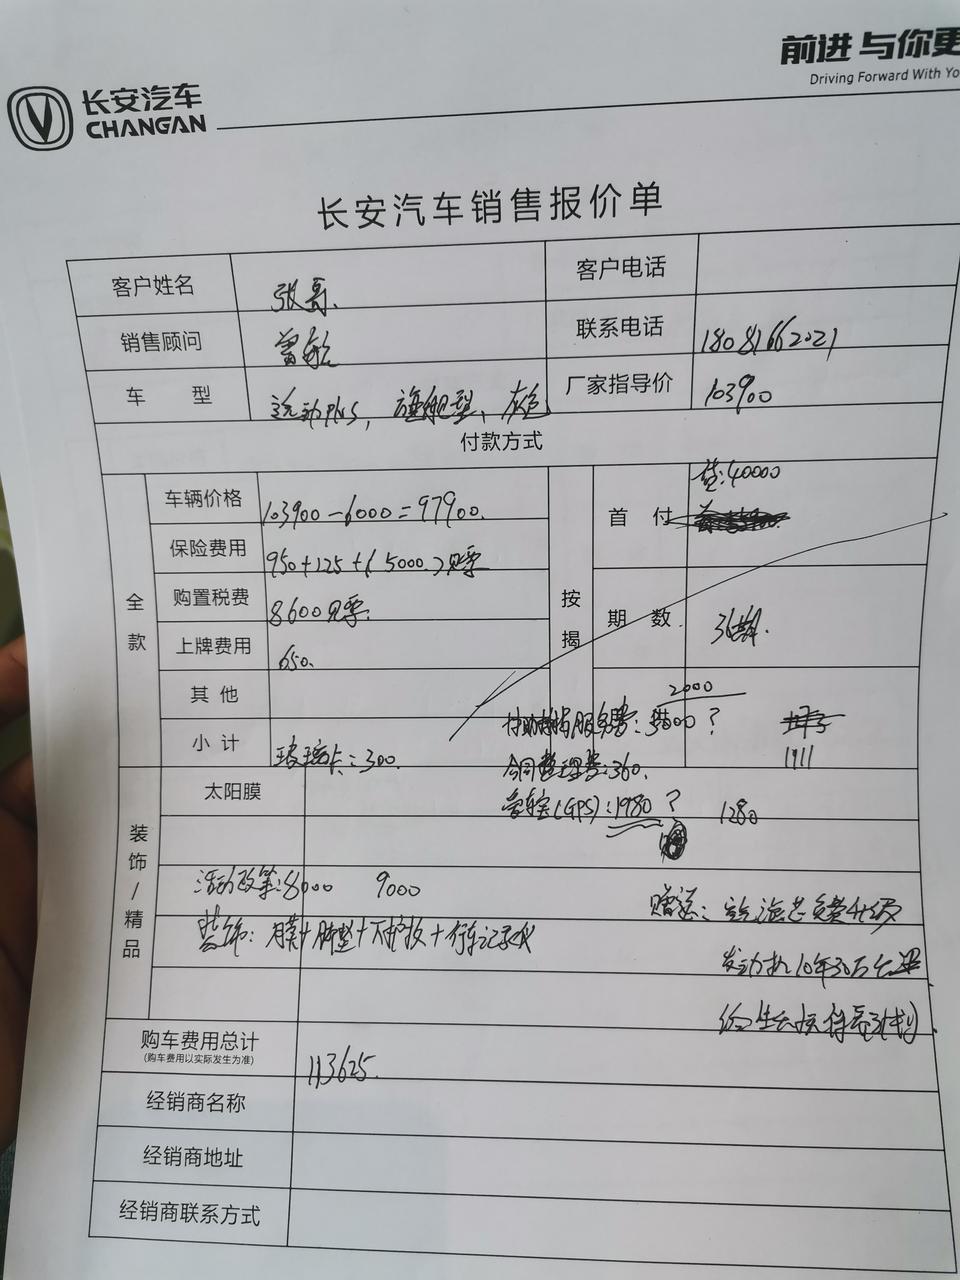 前进 与你更
Driving Forward With Yo
长安汽车
CHANGAN
长安汽车销售报价单
客户姓名 张哥、 客户电话
销售顾问 曾敏 联系电话 18081662021
车 型 逸动PLUS, 旗舰型、灰色 厂家指导价 103900
付款方式
全款 车辆价格 103900-6000=97900. 按揭 首 付 贷:40000
保险费用 950+125+(5000)见票
购置税费 8600见票. 期 数 36期.
上牌费用 650.
其 他 2000
服务费:3800?
小 计 玻璃卡:300. 1911
合同整理费:360.
装饰/精品 太阳膜
(GPS):1980? 1280
活动政策:8000 9000
赠送: 滤芯免费升级
装饰:膜+脚垫+下护板+行车记录仪
发动机10年30万公里
购车费用总计 113625.
(购车费用以实际发生为准)
经销商名称
经销商地址
经销商联系方式